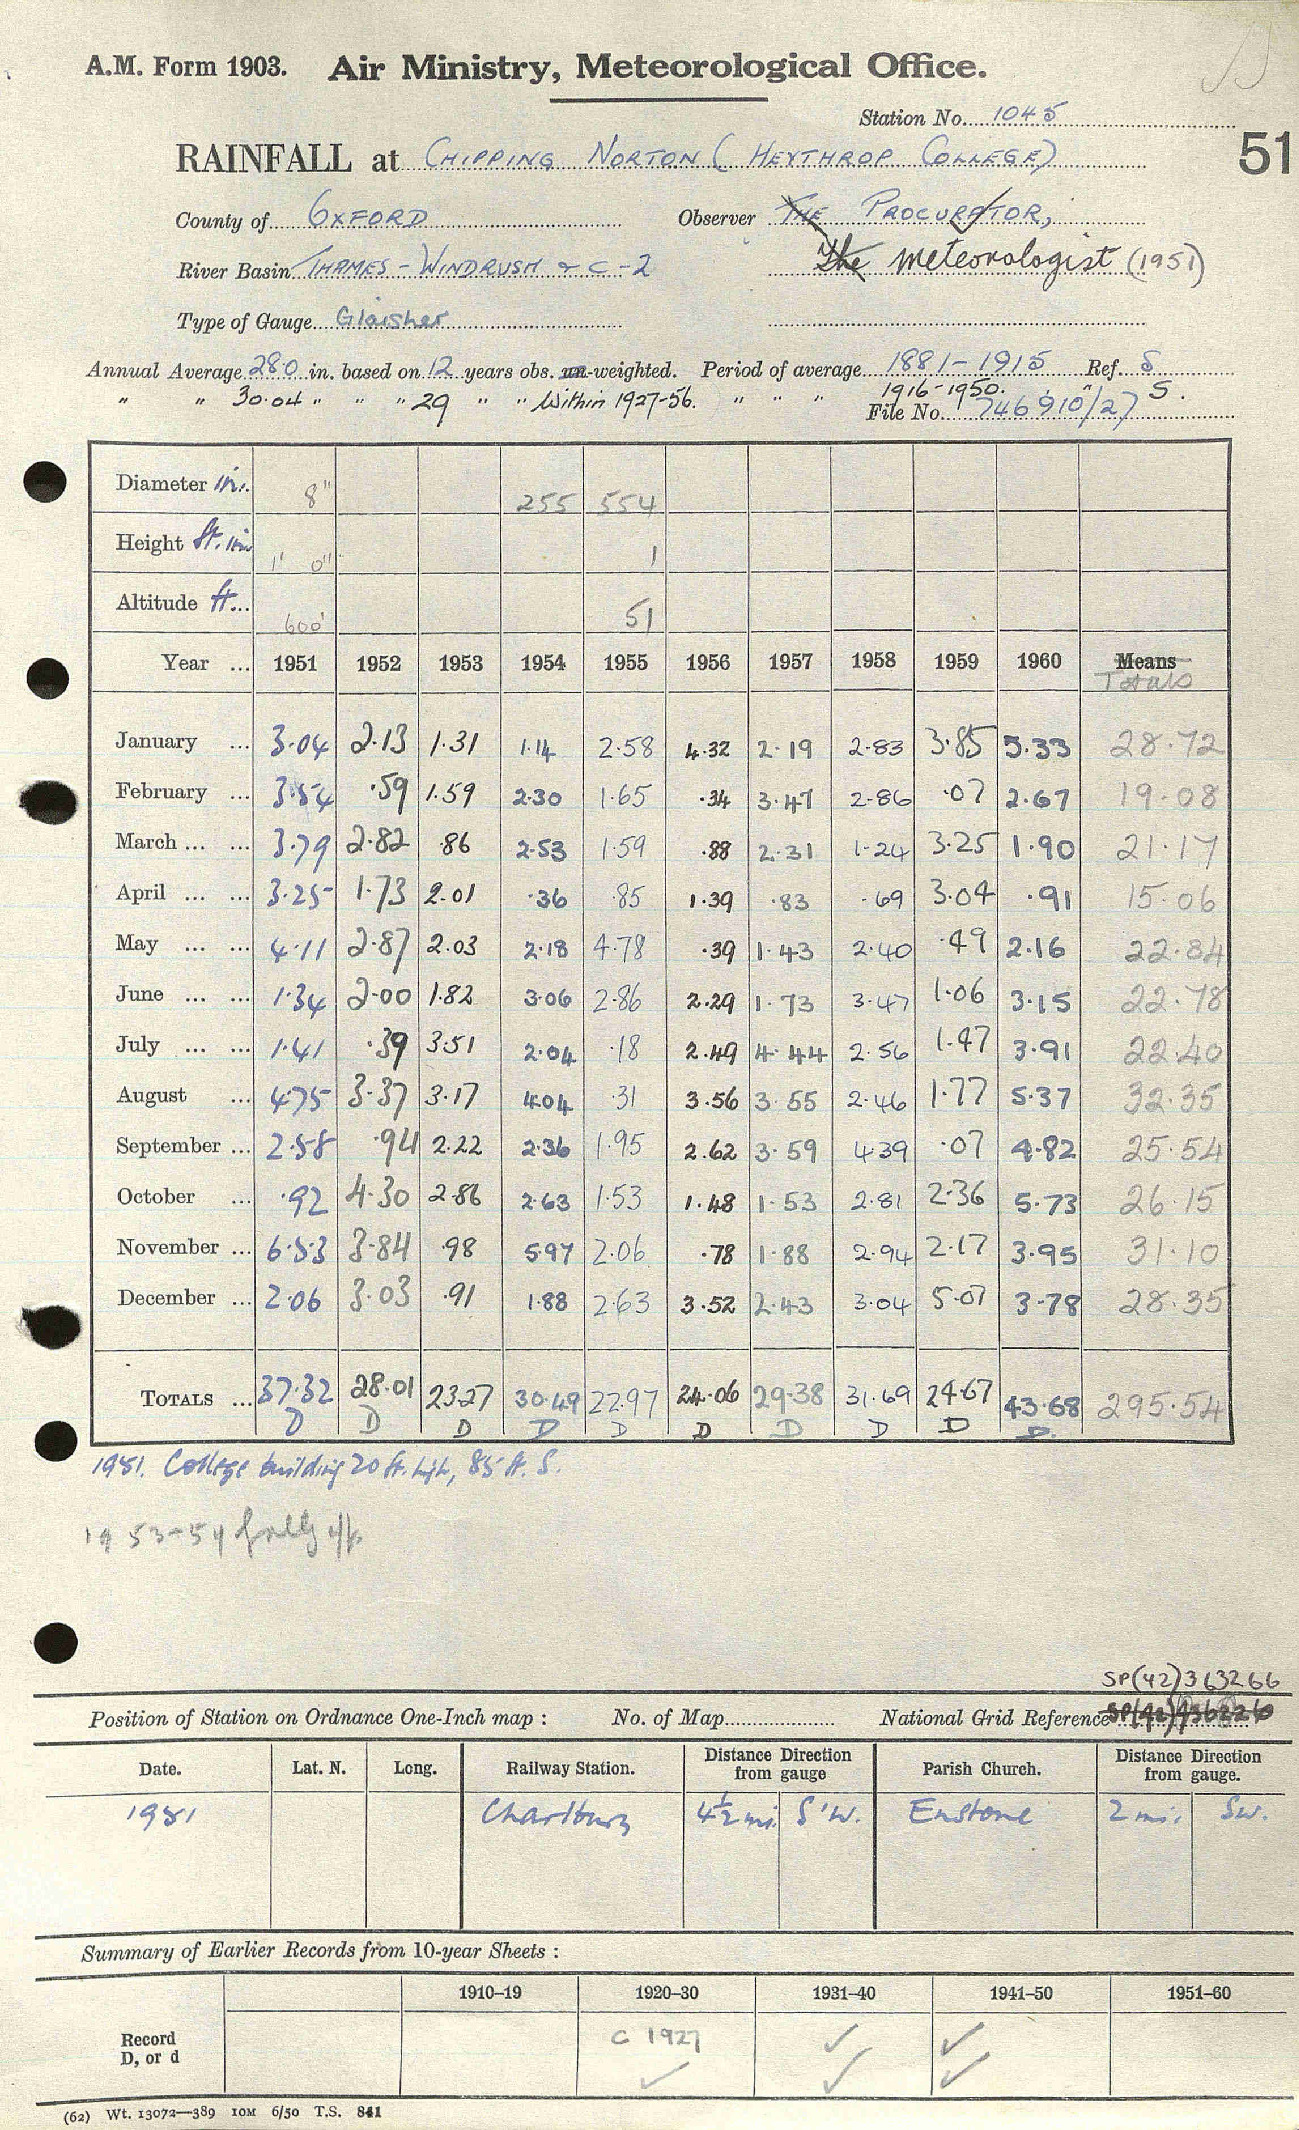 A.M. Form 1903. Air Ministry, Meteorological Office.
Station No. 1045
RAINFALL at CHIPPING NORTON (HEYTHROP COLLEGE)
51
County of OXFORD Observer THE PROCURATOR,
River Basin THAMES - WINDRUSH & C - 2 The Meteorologist (1951)
Type of Gauge Glaisher
Annual Average 28.0 in. based on 12 years obs. un-weighted. Period of average 1881-1915 Ref. S
" " 30.04 " " " 29 " " Within 1927-56. " " " 1916-1950. " S.
File No. 746910/27
Diameter in. 8" 255 554
Height ft. in. 1' 0" 1
Altitude ft... 600' 51
Year ... 1951 1952 1953 1954 1955 1956 1957 1958 1959 1960 Means
Totals
January ... 3.04 2.13 1.31 1.14 2.58 4.32 2.19 2.83 3.85 5.33 28.72
February ... 3.54 .59 1.59 2.30 1.65 .34 3.47 2.86 .07 2.67 19.08
March ... ... 3.79 2.82 .86 2.53 1.59 .88 2.31 1.24 3.25 1.90 21.17
April ... ... 3.25 1.73 2.01 .36 .85 1.39 .83 .69 3.04 .91 15.06
May ... ... 4.11 2.87 2.03 2.18 4.78 .39 1.43 2.40 .49 2.16 22.84
June ... ... 1.34 2.00 1.82 3.06 2.86 2.29 1.73 3.47 1.06 3.15 22.78
July ... ... 1.41 .39 3.51 2.04 .18 2.49 4.44 2.56 1.47 3.91 22.40
August ... 4.75 3.37 3.17 4.04 .31 3.56 3.55 2.46 1.77 5.37 32.35
September ... 2.58 .94 2.22 2.36 1.95 2.62 3.59 4.39 .07 4.82 25.54
October ... .92 4.30 2.86 2.63 1.53 1.48 1.53 2.81 2.36 5.73 26.15
November ... 6.53 3.84 .98 5.97 2.06 .78 1.88 2.94 2.17 3.95 31.10
December ... 2.06 3.03 .91 1.88 2.63 3.52 2.43 3.04 5.07 3.78 28.35
TOTALS ... 37.32 28.01 23.27 30.49 22.97 24.06 29.38 31.69 24.67 43.68 295.54
D D D D D D D D D D.
1951. College building 20 ft. high, 85 ft. S.
1953-54
SP(42)363266
Position of Station on Ordnance One-Inch map : No. of Map National Grid Reference
Date. Lat. N. Long. Railway Station. Distance from gauge Direction Parish Church. Distance from gauge. Direction
1951 Charlbury 4½ mi. S'W. Enstone 2 mi. SW.
Summary of Earlier Records from 10-year Sheets :
1910–19 1920–30 1931–40 1941–50 1951–60
Record D, or d C 1927 ✓ ✓
✓ ✓ ✓
(62) Wt. 13072—389 10M 6/50 T.S. 841